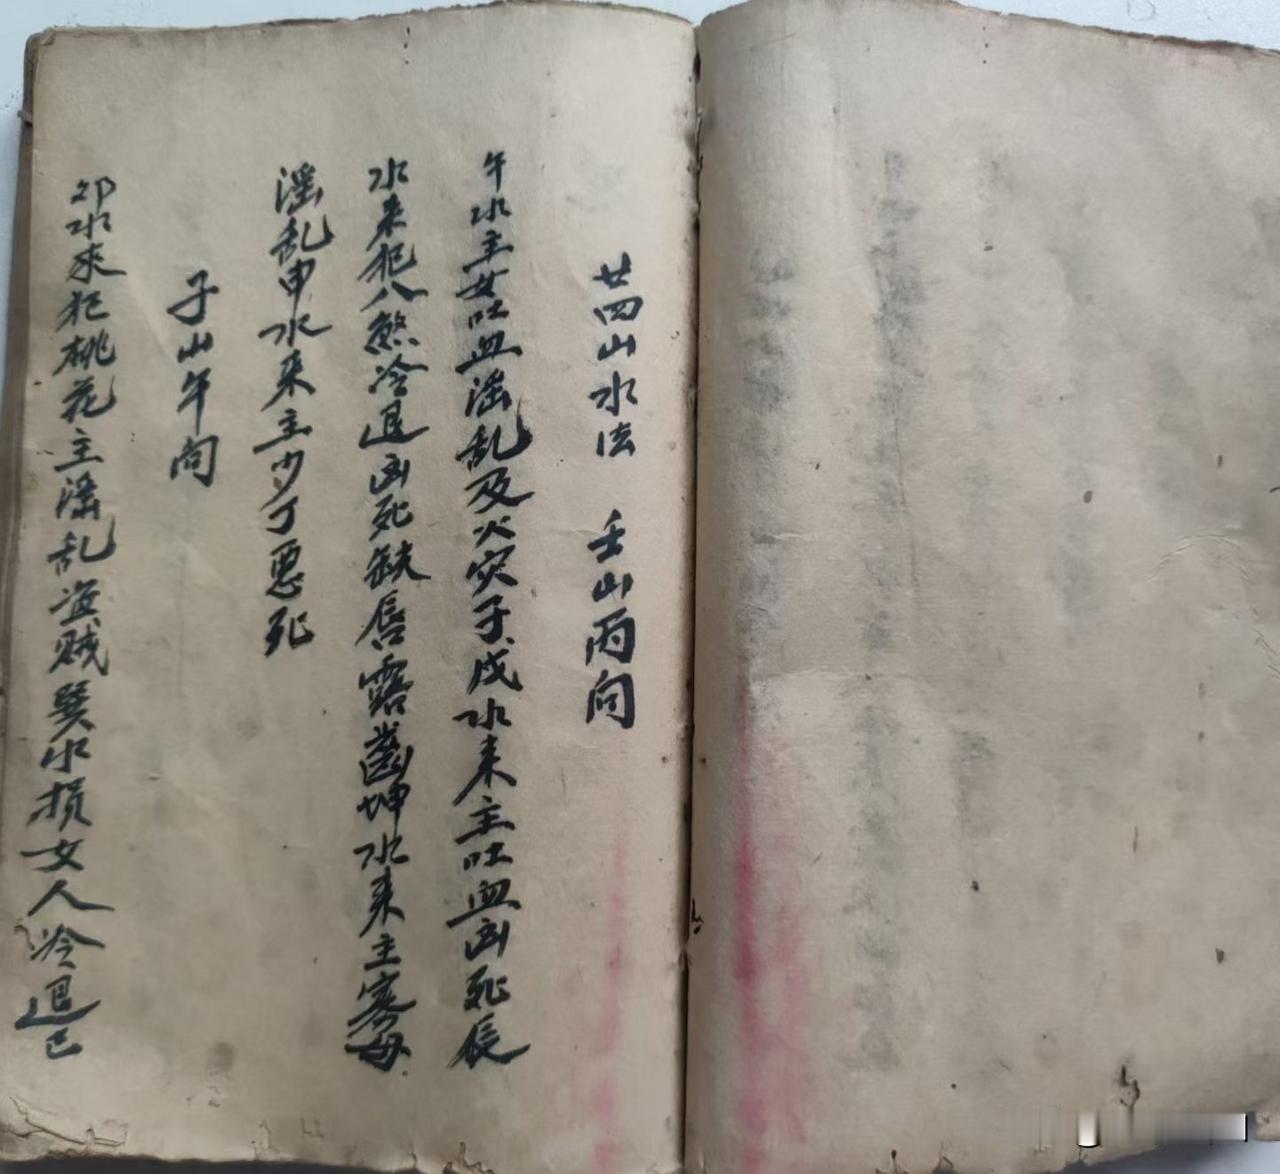 廿四山水法　壬山丙向
午水主女吐血滛乱及火灾子戌水来主吐血凶死辰
水来犯八煞冷退凶死缺唇露齒坤水来主寡母
滛乱申水来主少丁惡死
子山午向
卯水來犯桃花主滛乱盗贼巽水損女人冷退巳